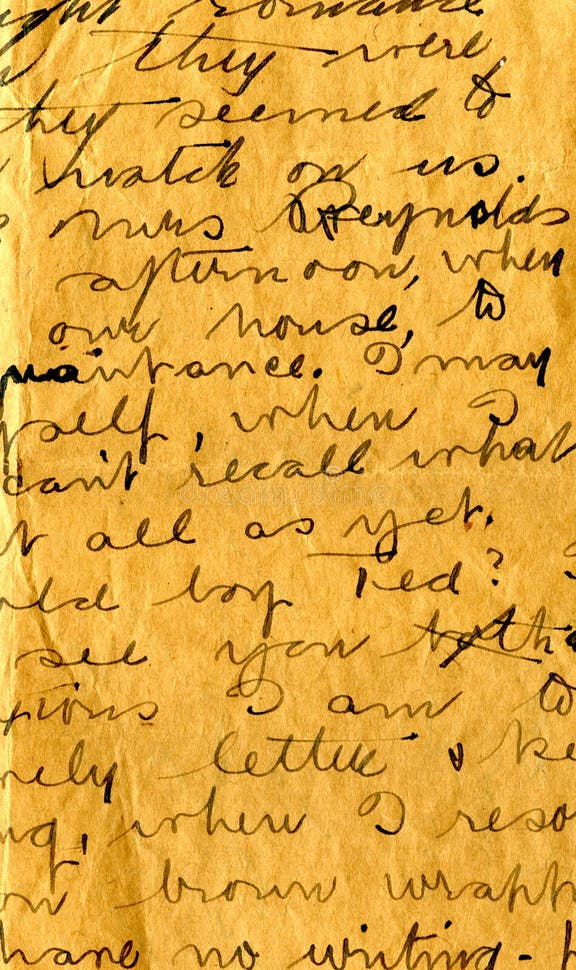 ight romance
they were
they seemed to
watch on us.
mrs Reynolds
afternoon, when
our house, to
quaintance. I may
yself, when I
can't recall what
t all as yet.
old boy Ted? I
see you
tions I am to
nely letter & ke
ng, where I reso
on brown wrapp
have no writing - h